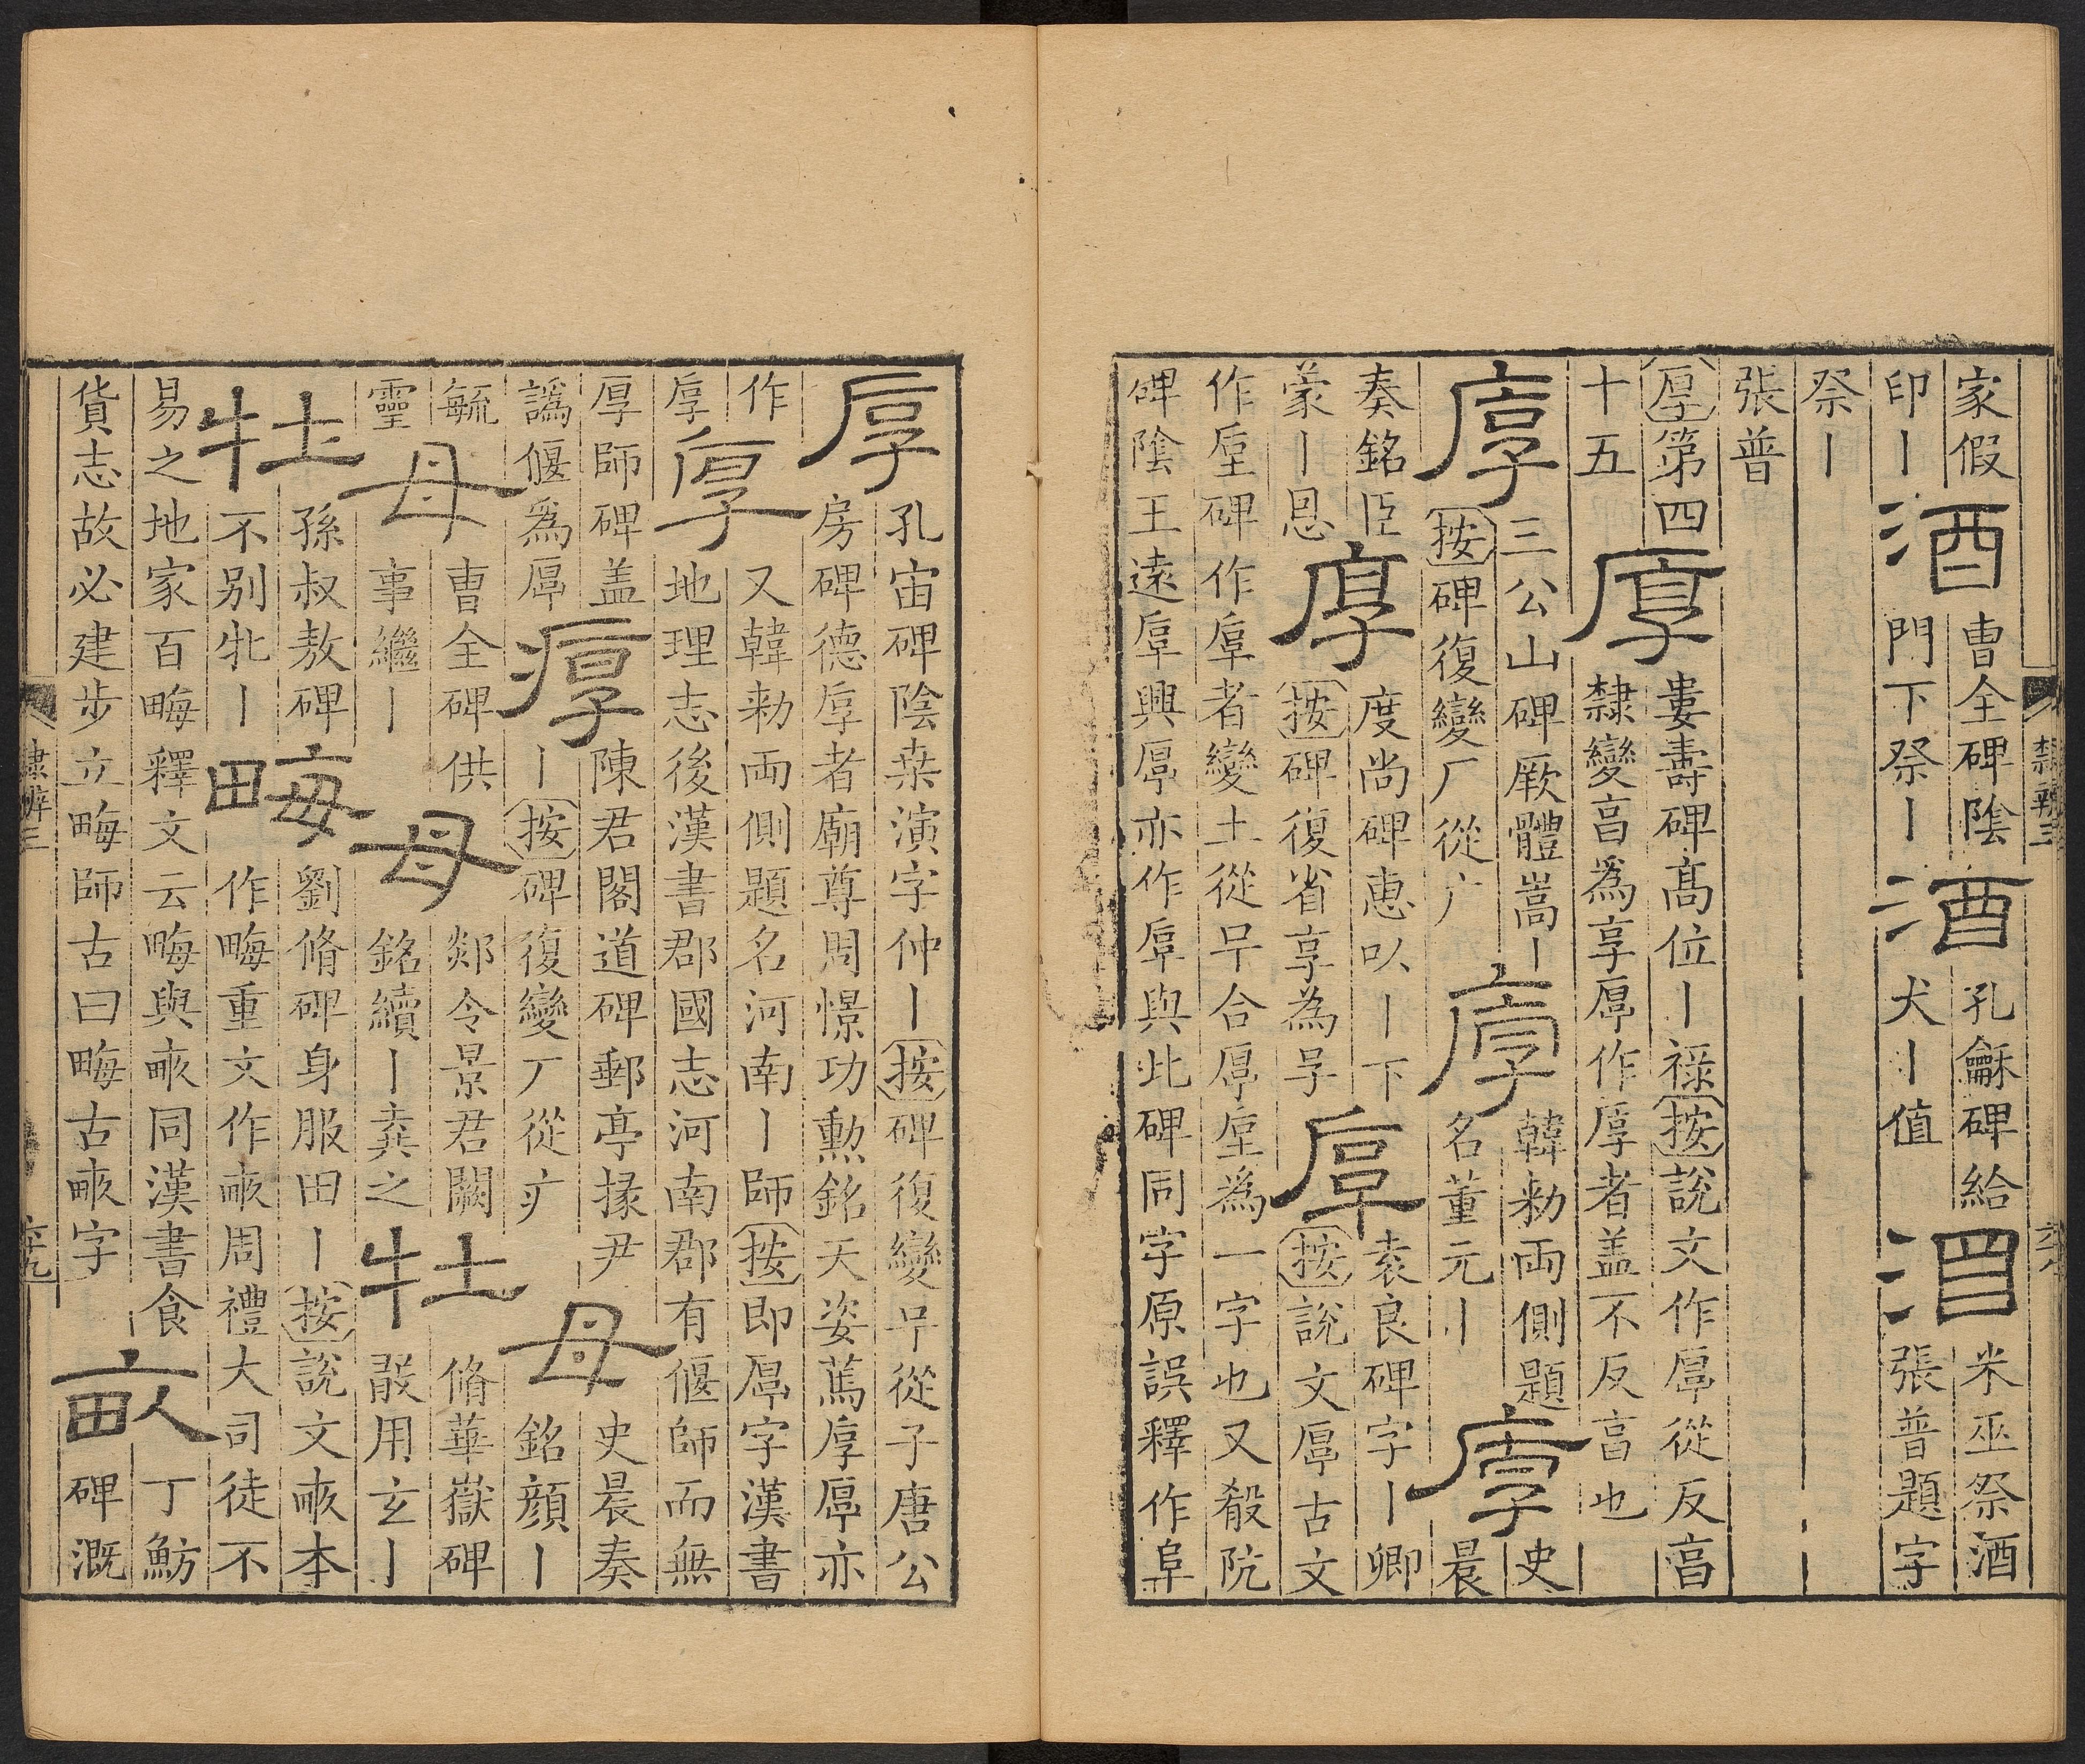 家假
印丨
酒
曹全碑陰
門下祭丨
酒
孔龢碑給
犬丨值
酒
米巫祭酒
張普題字
祭丨
張普
厚第四
十五
厚
婁壽碑高位丨祿按說文作厚從反亯
隸變亯為享厚作厚者盖不反亯也丨
厚
三公山碑厥體嵩丨
按碑復變厂從广
厚
韓勑兩側題
名董元丨
厚
史
晨
奏銘臣
蒙丨恩
厚
度尚碑惠以丨下
按碑復省享為㝀
厚
袁良碑字丨卿
按說文厚古文
作垕碑作厚者變土從㝀合厚垕為一字也又殽阬
碑陰王遠厚興厚亦作厚與此碑同字原誤釋作阜
隸辨三
厚
孔宙碑陰桒演字仲丨按碑復變㝀從子唐公
房碑德厚者廟尊周憬功勳銘天姿篤厚厚亦
作
厚
厚
又韓勑兩側題名河南丨師按即厚字漢書
地理志後漢書郡國志河南郡有偃師而無
厚師碑盖
譌偃為厚
陳君閣道碑郵亭掾尹
丨按碑復變厂從疒
母
史晨奏
銘顏丨
毓
靈
母
曹全碑供
事繼丨
母
郯令景君闕
銘續丨龚之
牡
脩華嶽碑
㪚用玄丨
牡
孫叔敖碑
不别牝丨
畮
劉脩碑身服田丨按說文畞本
作畮重文作畞周禮大司徒不
易之地家百畮釋文云畮與畞同漢書食
貨志故必建步立畮師古曰畮古畞字
畝
丁魴
碑溉
隸辨三